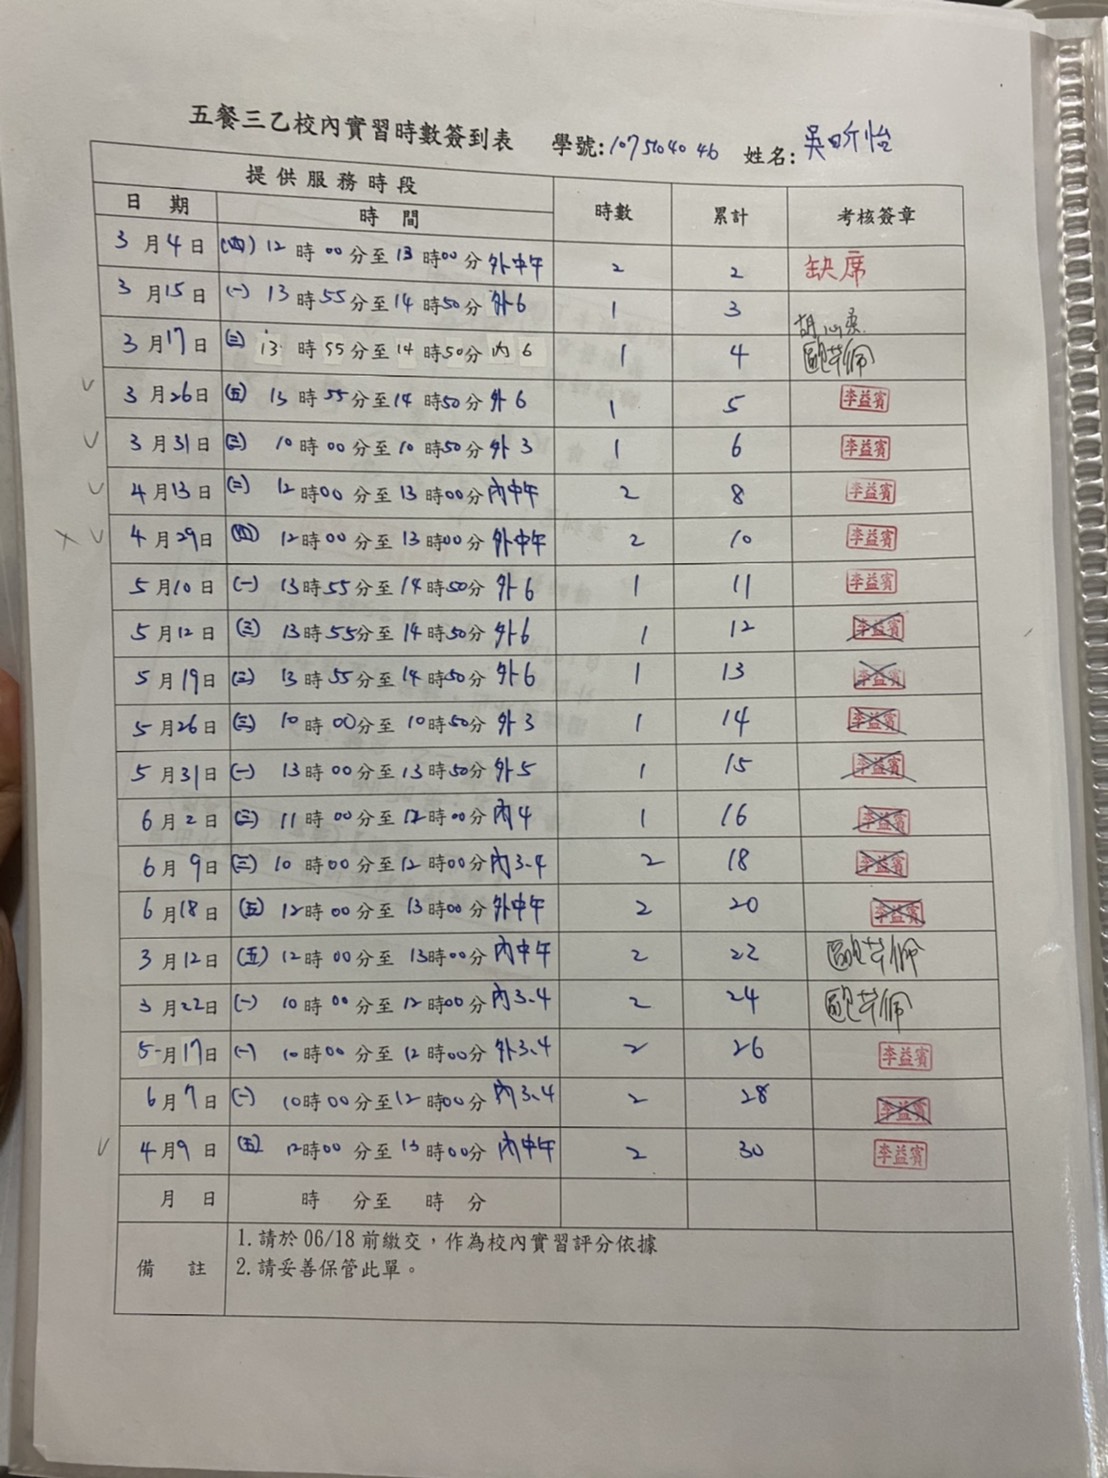 五餐三乙校內實習時數簽到表 學號:107504046 姓名:吳昕怡
提供服務時段 時數 累計 考核簽章
日 期 時 間
3月4日 (四) 12時00分至13時00分 外中午 2 2 缺席
3月15日 (一) 13時55分至14時50分 外6 1 3
3月17日 (三) 13時55分至14時50分 內6 1 4
V 3月26日 (五) 13時55分至14時50分 外6 1 5 李益賓
V 3月31日 (三) 10時00分至10時50分 外3 1 6 李益賓
V 4月13日 (二) 12時00分至13時00分 內中午 2 8 李益賓
X V 4月29日 (四) 12時00分至13時00分 外中午 2 10 李益賓
5月10日 (一) 13時55分至14時50分 外6 1 11 李益賓
5月12日 (三) 13時55分至14時50分 外6 1 12 李益賓
5月19日 (三) 13時55分至14時50分 外6 1 13 李益賓
5月26日 (三) 10時00分至10時50分 外3 1 14 李益賓
5月31日 (一) 13時00分至13時50分 外5 1 15 李益賓
6月2日 (三) 11時00分至12時00分 內4 1 16 李益賓
6月9日 (三) 10時00分至12時00分 內3.4 2 18 李益賓
6月18日 (五) 12時00分至13時00分 外中午 2 20 李益賓
3月12日 (五) 12時00分至13時00分 內中午 2 22
3月22日 (一) 10時00分至12時00分 內3.4 2 24
5月17日 (一) 10時00分至12時00分 外3.4 2 26 李益賓
6月7日 (一) 10時00分至12時00分 內3.4 2 28 李益賓
V 4月9日 (五) 12時00分至13時00分 內中午 2 30 李益賓
月 日 時 分至 時 分
備 註
1.請於06/18前繳交,作為校內實習評分依據
2.請妥善保管此單。